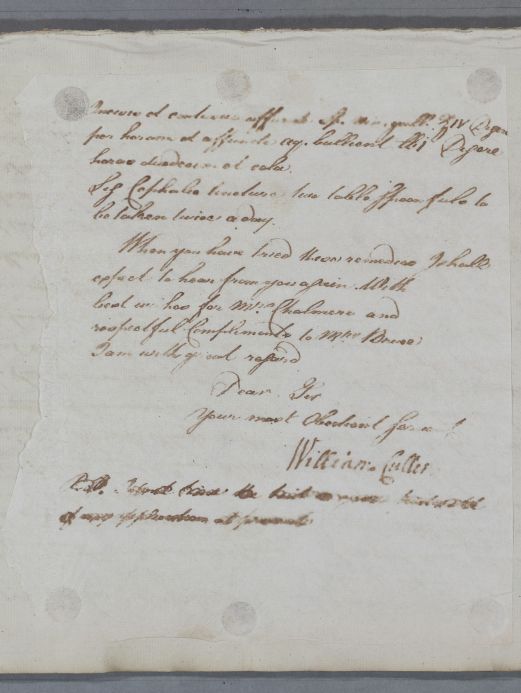 Incisa et contusa affund. Sp. vin. gall. ℔ IV Digere
per horam et affunde aq. bullient. ℔ ij Digere
horas duodecim et cola.
Sig. Cephalic tincture two table spoonfuls to
be taken twice a day.
When you have tried these remedies I shall
expect to hear from you again. With
best wishes for Mrs Chalmers and
respectful Compliments to Mrs Bruce
I am with great regard
Dear Sir
Your most Obedient serv.t
William Cullen
P.S.
of any application at present